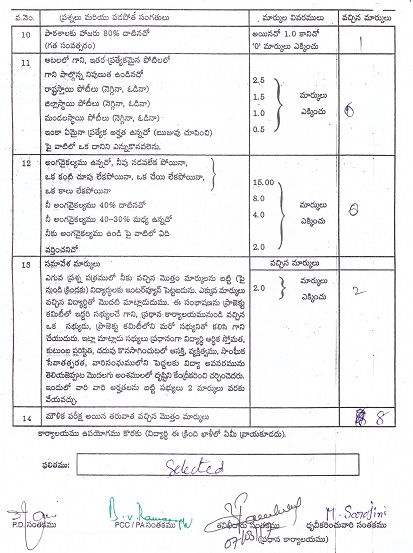 వ.నెం. ప్రశ్నలు మరియు పడపోత సంగతులు మార్కుల వివరములు వచ్చిన మార్కులు
10 పాఠశాలకు హాజరు 80% దాటినచో అయినచో 1.0 కానిచో 1
(గత సంవత్సరం) '0' మార్కులు ఎక్కించు
11 ఆటలలో గాని, ఇతర ప్రత్యేకమైన పోటిలలో
గాని పాల్గొన్న నిపుణత ఉండినచో 2.5
రాష్ట్రస్థాయి పోటీలు (నెగ్గినా, ఓడినా) 1.5 మార్కులు
జిల్లాస్థాయి పోటీలు (నెగ్గినా, ఓడినా) 1.0 ఎక్కించు 6
మండలస్థాయి పోటీలు (నెగ్గినా, ఓడినా) 1.0
ఇంకా ఏమైనా ప్రత్యేక అర్హత ఉన్నచో (ఋజువు చూపించి) 0.5
పై వాటిలో ఒక దానిని ఎన్నుకొనవలెను.
12 అంగవైకల్యము ఉన్నచో, నీవు నడవలేక పోయినా,
ఒక కంటి చూపు లేకపోయినా, ఒక చేయి లేకపోయినా, 15.00
ఒక కాలు లేకపోయినా 8.0 మార్కులు
నీ అంగవైకల్యము 40% దాటినచో 4.0 ఎక్కించు 6
నీ అంగవైకల్యము 40-30% మధ్య ఉన్నచో
నీకు అంగవైకల్యము ఉండి పై వాటిలో ఏది 2.0
వర్తించనిచో
13 సమావేశ మార్కులు వచ్చిన మార్కులు
ఎగువ ప్రశ్న పత్రములో నీకు వచ్చిన మొత్తం మార్కులను బట్టి (పై 2.0 మార్కులు 2
నుండి క్రిందకు) విద్యార్థులకు ఇంటర్వ్యూకి పెట్టబడును. ఎక్కువ మార్కులు ఎక్కించు
వచ్చిన విద్యార్థితో మొదటి మాట్లాడుదుము. ఈ సంభాషణను ప్రాజెక్టు
కమిటీలో ఇద్దరి సభ్యులచే గాని, ప్రధాన కార్యాలయమునుండి వచ్చిన
ఒక సభ్యుడు, ప్రాజెక్టు కమిటీలోని మరో సభ్యునితో కలిసి గాని
చేయుదురు. ఇట్లా మాట్లాడ సభ్యులు ప్రధానంగా విద్యార్థి ఆర్థిక స్తోమత,
కుటుంబ పరిస్థితి, చదువు కొనసాగించుటలో ఆసక్తి, వ్యక్తిత్వము, సాంఘీక
సేవాతత్పరత, వారినసంఘములోని పెద్దలకు విద్యా అవసరమును
తెలియజెప్పుట మొదలగు అంశములలో దృష్టిని కేంద్రీకరించి చర్చించెదరు.
ఇందులో వారి వారి అర్హతలను బట్టి సభ్యులు 2 మార్కులు వరకు
వేయవచ్చు.
14 మౌళిక పరీక్ష అయిన తరువాత వచ్చిన మొత్తం మార్కులు 8
కార్యాలయము ఉపయోగము కొరకు (విద్యార్థి ఈ క్రింది ఖాళీలో ఏమీ వ్రాయకూడదు).
ఫలితము: Selected
B.V. M. Sarojini
P.D. సంతకము PCC / PA సంతకము తనిఖీదారు సంతకము ధృవీకరించువారి సంతకము
(ప్రధాన కార్యాలయము)